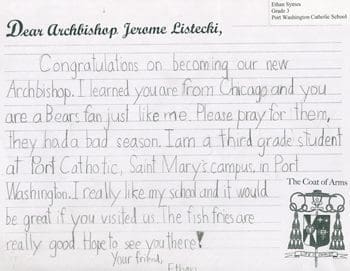 Ethan Symes
Grade 3
Port Washington Catholic School
Dear Archbishop Jerome Listecki,
Congratulations on becoming our new
Archbishop. I learned you are from Chicago and you
are a Bears fan just like me. Please pray for them,
they had a bad season. I am a third grade student
at Port Cathotic, Saint Mary's campus, in Port
Washington. I really like my school and it would
be great if you visited us. The fish fries are
really good. Hope to see you there!
Your friend,
Ethan
The Coat of Arms